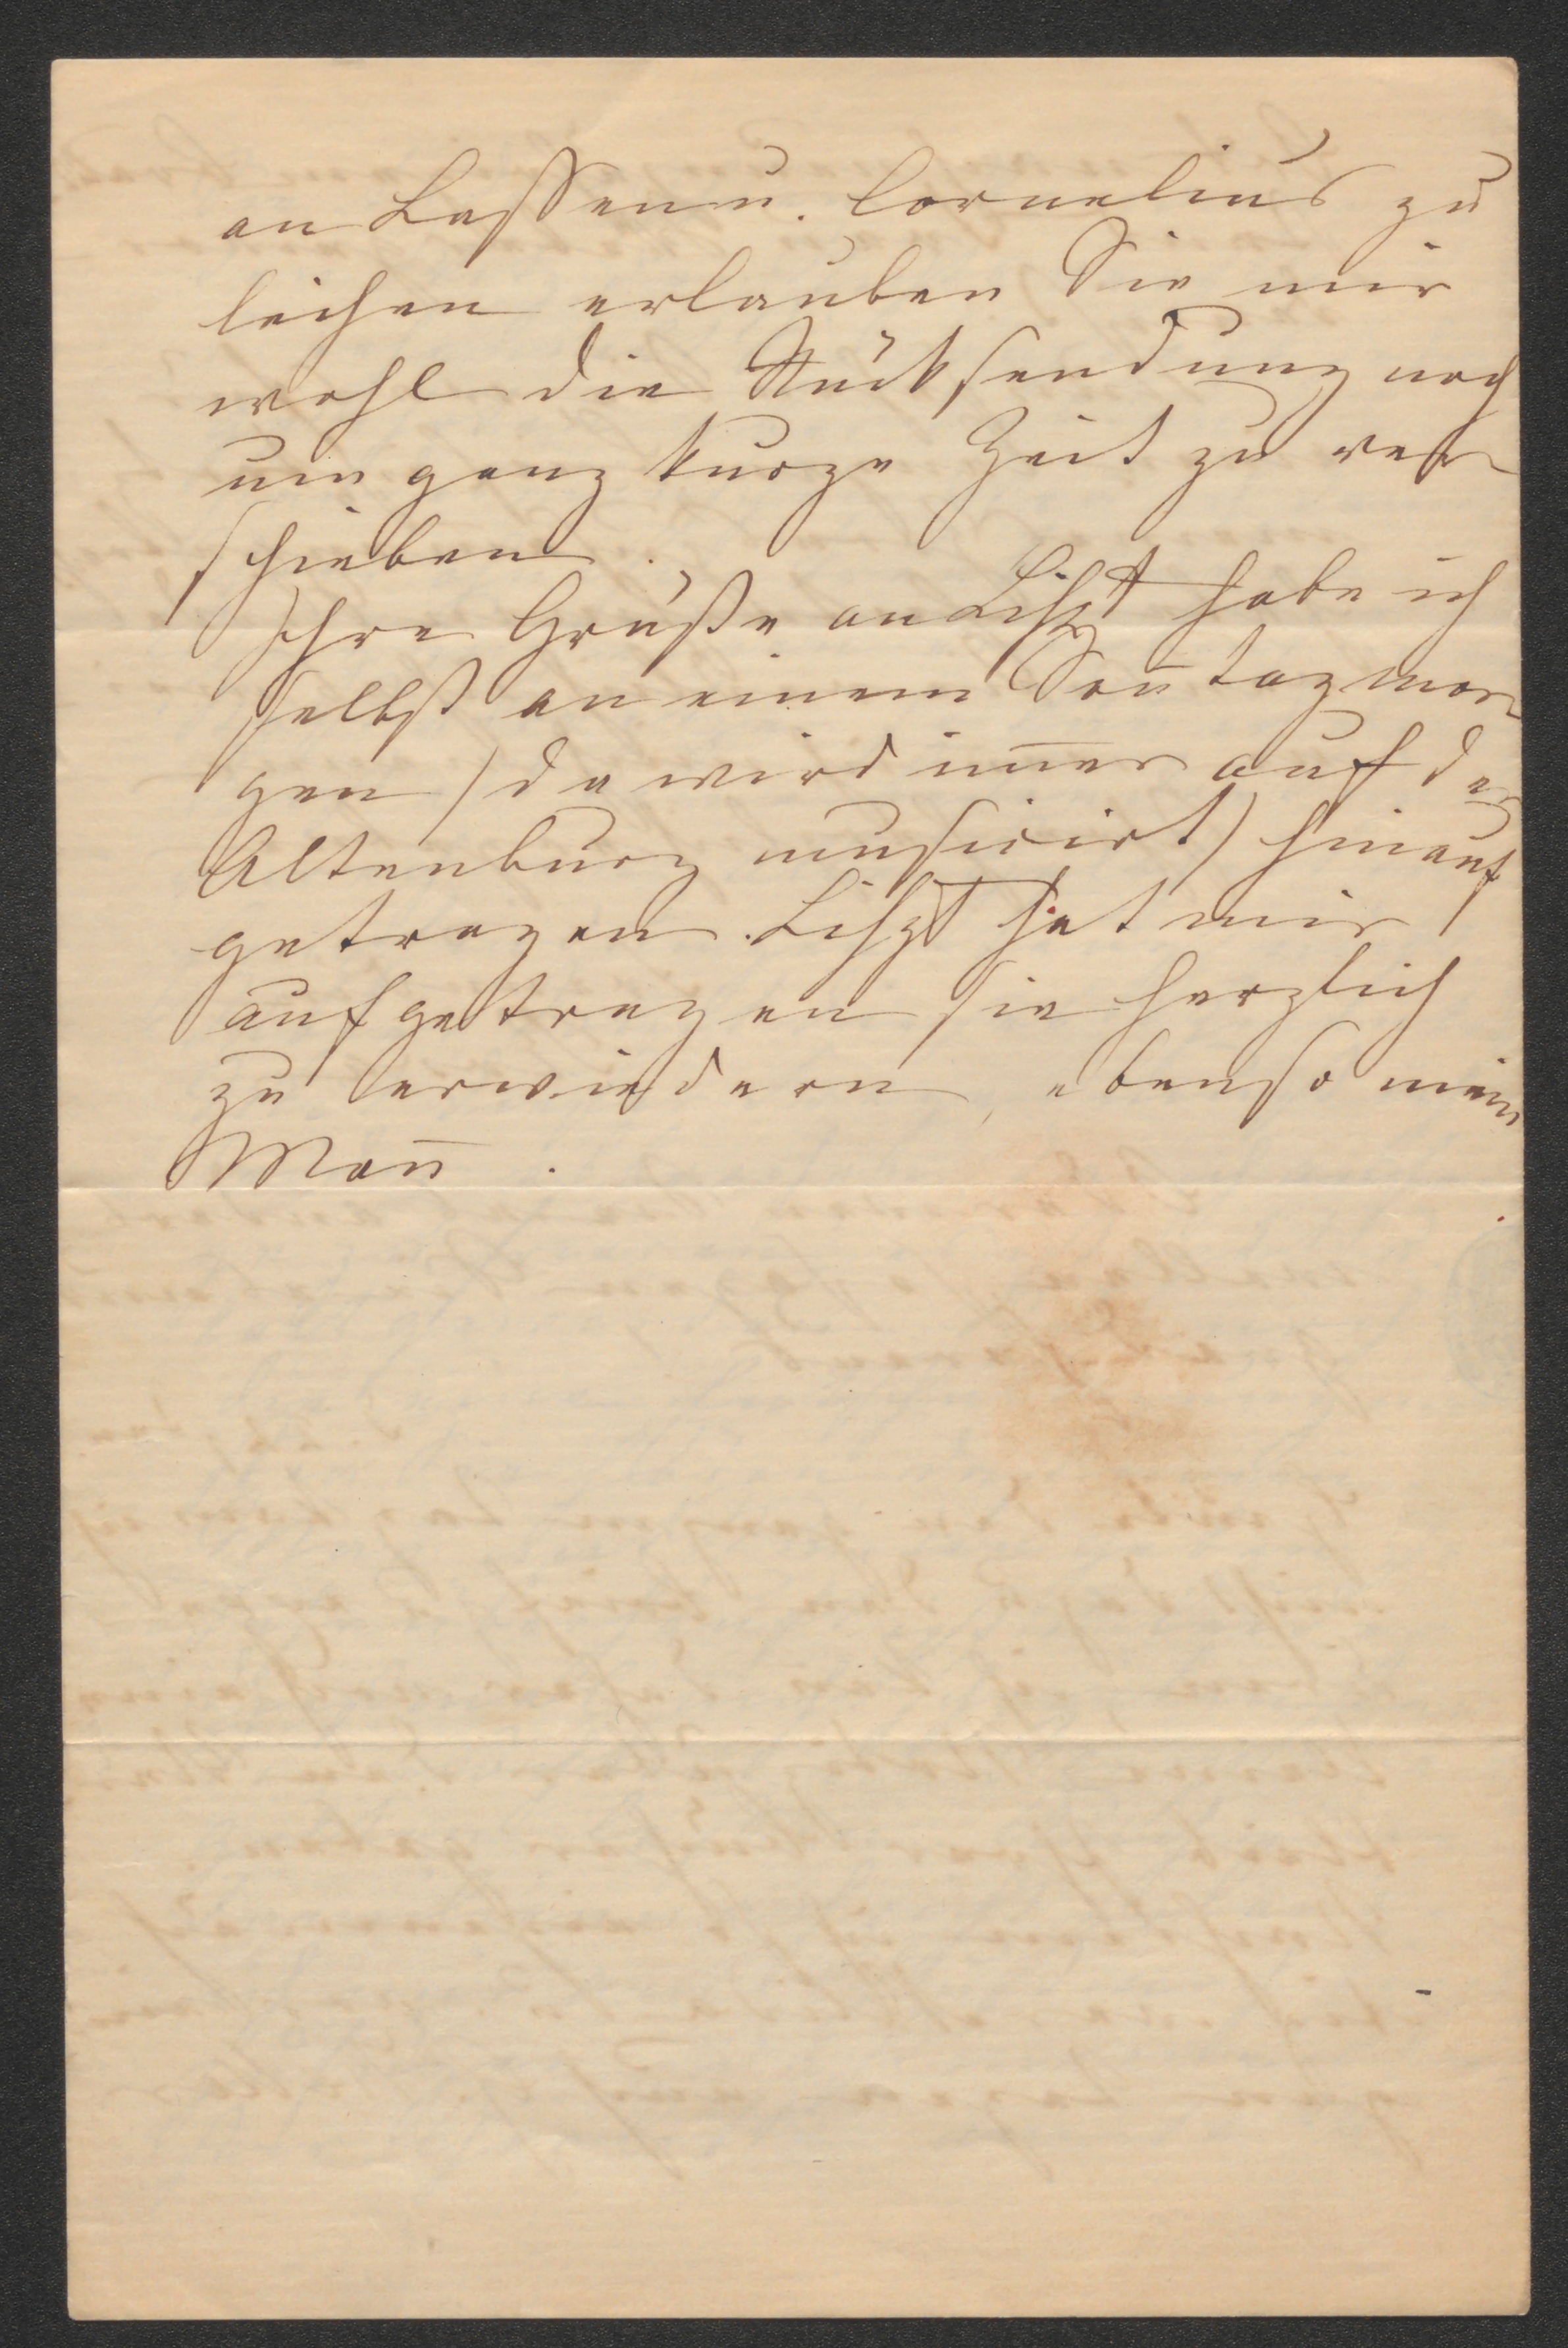 an Lassen u. Cornelius zu
leihen erlauben Sie mir
wohl die Rücksendung noch
um ganz kurze Zeit zu ver-
schieben.
Ihre Grüße an Liszt habe ich
selbst an einem Son̄tagmor-
gen (da wird im̄er auf der
Altenburg musicirt) hinauf
getragen. Liszt hat mir
aufgetragen sie herzlich
zu erwiedern, ebenso mein
Man̄.